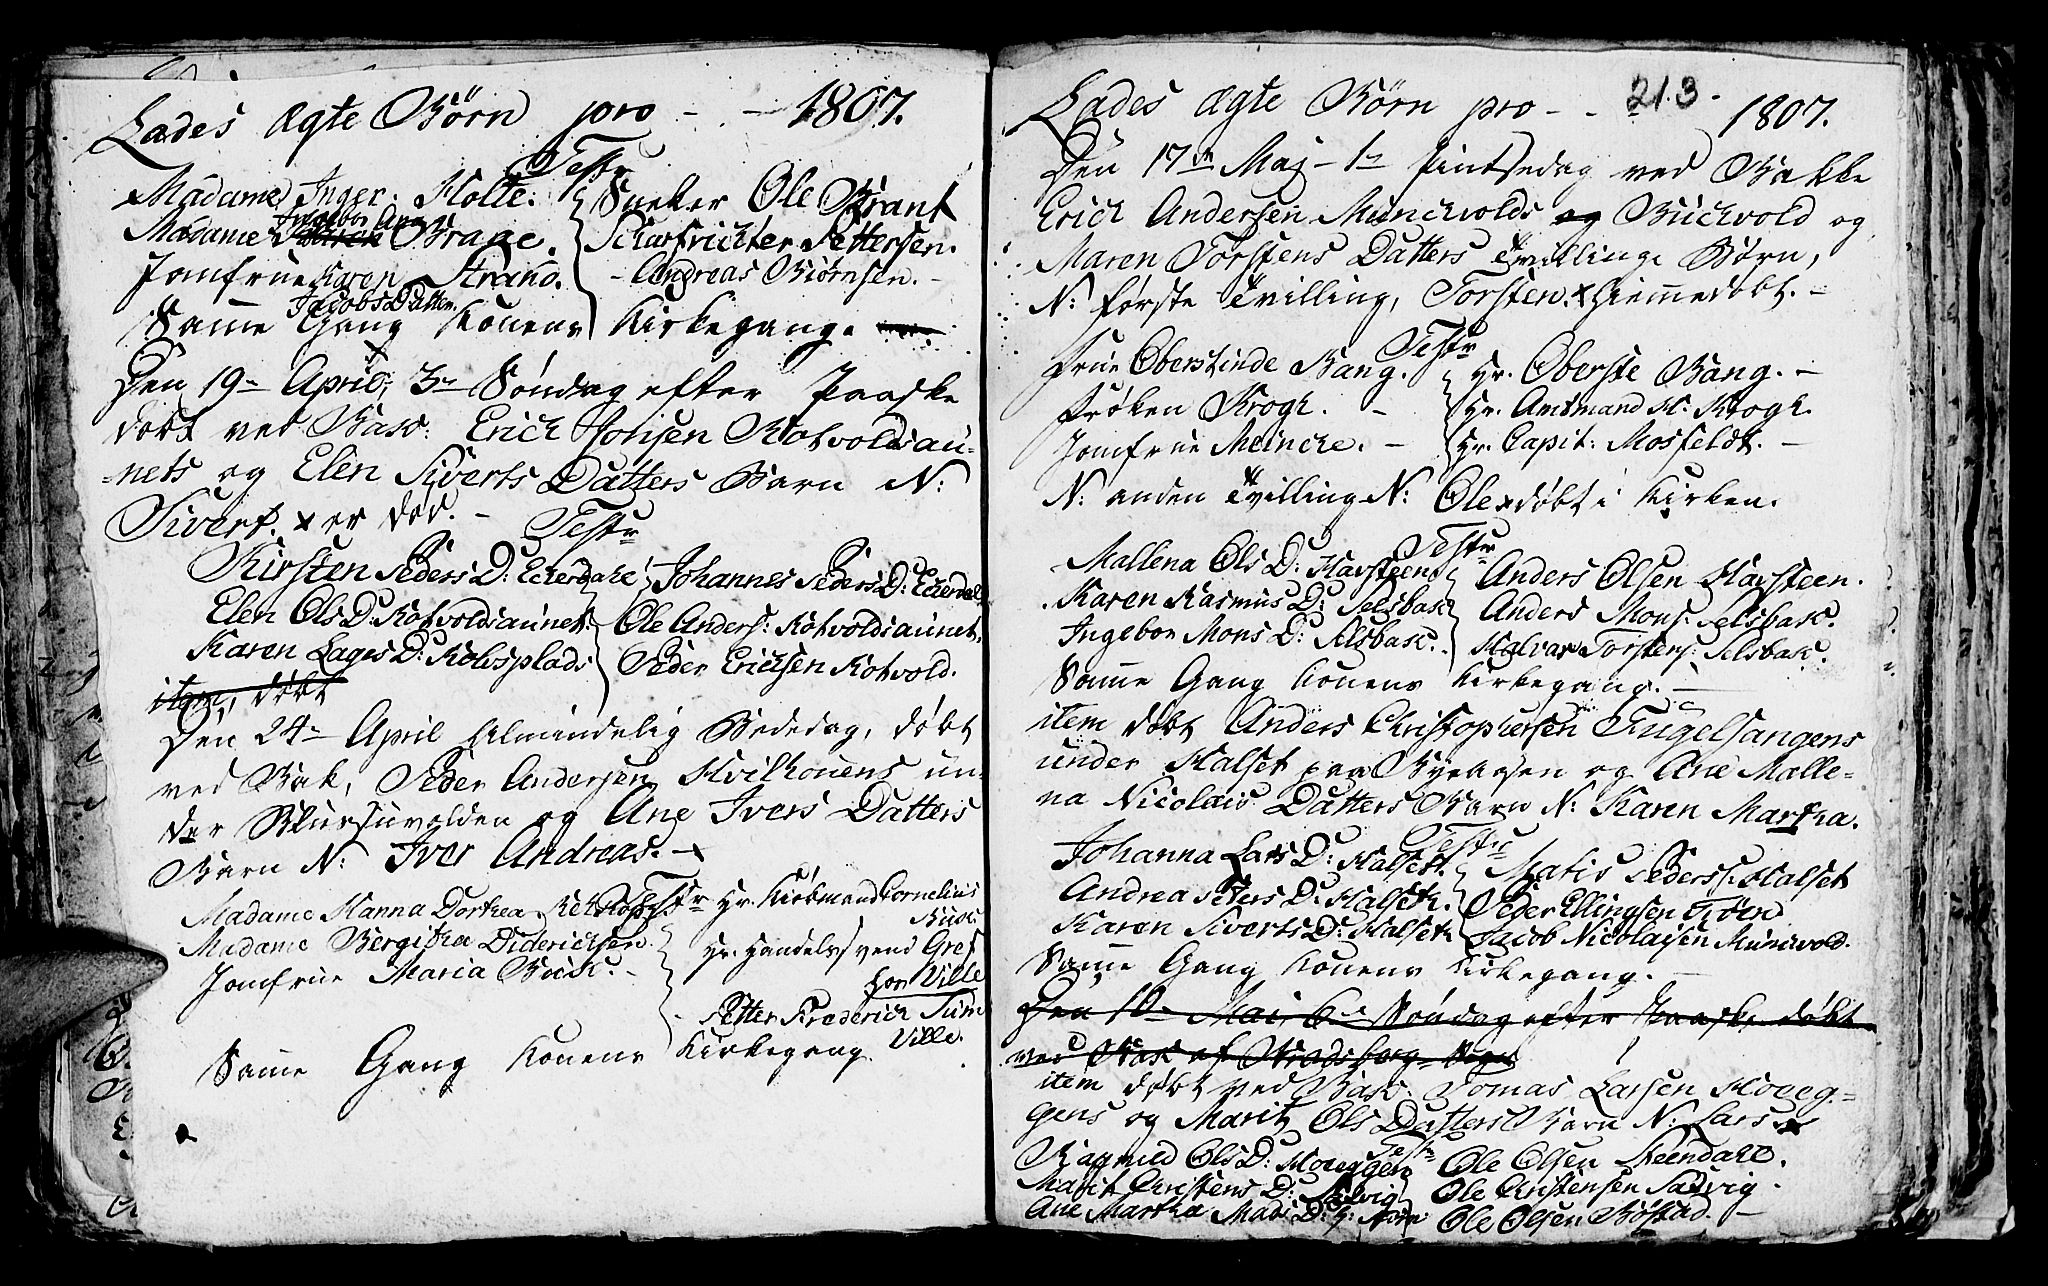 Lades ægte Børn pro - - 1807.
Testr
Madame Inger Holte. Sneker Ole Brant
Madame Ingebor Ane Brage. Scharfrichter Pettersen.
Jomfrue Karen Strand. - Andreas Biørnsen. -
Jacobs Datter
Samme Gang Konens Kirkegang.
Den 19de April, 3de Søndag efter Paaske
døbt ved Bakk: Erick Johsen Rotvoldsau-
nets og Elen Siverts Datters Barn N:
Sivert. x er død. -
Testr
Kirsten Peders D: Eckerdahl Johannes Peders D: Eckerdal
Elen Ols D: Rotvoldsaunet: Ole Anders: Rotvoldsaunet.
Karen Lages D: Rotvsplads Peder Ericksen Rotvold.
item, døbt
Den 24de April Almindelig Bededag, døbt
ved Bak, Peder Andersen Hvilkonens un-
der og Ane Ivers Datters
Barn N: Iver Andreas. - x
Testr
Madame Hanna Dorthea Hr. Kiøbmand Cornelius
Busc
Madame Bergitha Diderichsen. Hr. Handelsvend Gref
Jomfrue Maria Busc. - Ville
Petter Frederich Sum
Ville.
Samme Gang Konens Kirkegang.
213.
Lades ægte Børn pro - - 1807.
Den 17de Maj - 1te Pintsedag ved Bakke
Erich Andersen Munckvolds og Buckvold og
Maren Torstens Datters Tvillinge Børn,
N: første Tvilling, Torsten. x Hiemmedøbt. -
Testr
Frue Oberstinde Bang. Hr. Oberste Bang. -
Frøken Krogh. - Hr. Amtmand H: Krogh.
Jomfrue Meincke. - Hr. Capit: Mosfeldt. -
N: anden Tvilling N: Ole x døbt i Kirken.
Testr
Mallena Ols D: Havsteen Anders Olsen Havsteen.
Karen Rasmus D: Selsbak Anders Mons: Selsbak.
Ingebor Mons D: Selsbak. Halvar Torstens: Selsbak.
Samme Gang Konens Kirkegang. -
item døbt Anders Christophersen Fugelsangens
under Halset paa Byeaasen og Ane Malle-
na Nicolais Datters Barn N: Karen Martha.
Testr
Johanna Lars D: Halset. Matis Peders: Halset
Andrea Peters D: Halset. Peder Ellingsen Tiørn
Karen Siverts D: Halset Jacob Nicolaisen Munkvold.
Samme Gang Konens Kirkegang. -
Den 10de Mai 6te Søndag efter Paaske døbt
ved Bak af
item døbt ved Bak: Tomas Larsen Hoeg-
gens og Marit Ols Datters Barn N: Lars x
Testr
Ragnild Ols D: Hoeggen Ole Olsen Steendahl.
Marit Christens D: Ladvig Ole Christensen Ladvig.
Ane Martha Mads D: Ole Olsen Bostad. -